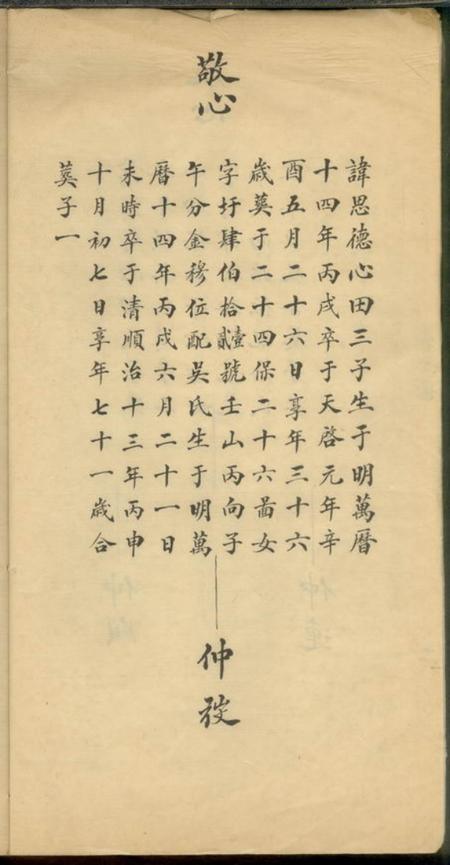 敬心
諱思德心田三子生于明萬曆
十四年丙戌卒于天啓元年辛
酉五月二十六日享年三十六
歲葬于二十四保二十六啚女
字圩肆伯拾壹貳號壬山丙向子
午分金穆位配吳氏生于明萬
曆十四年丙戌六月二十一日
未時卒于清順治十三年丙申
十月初七日享年七十一歲合
葬子一
仲